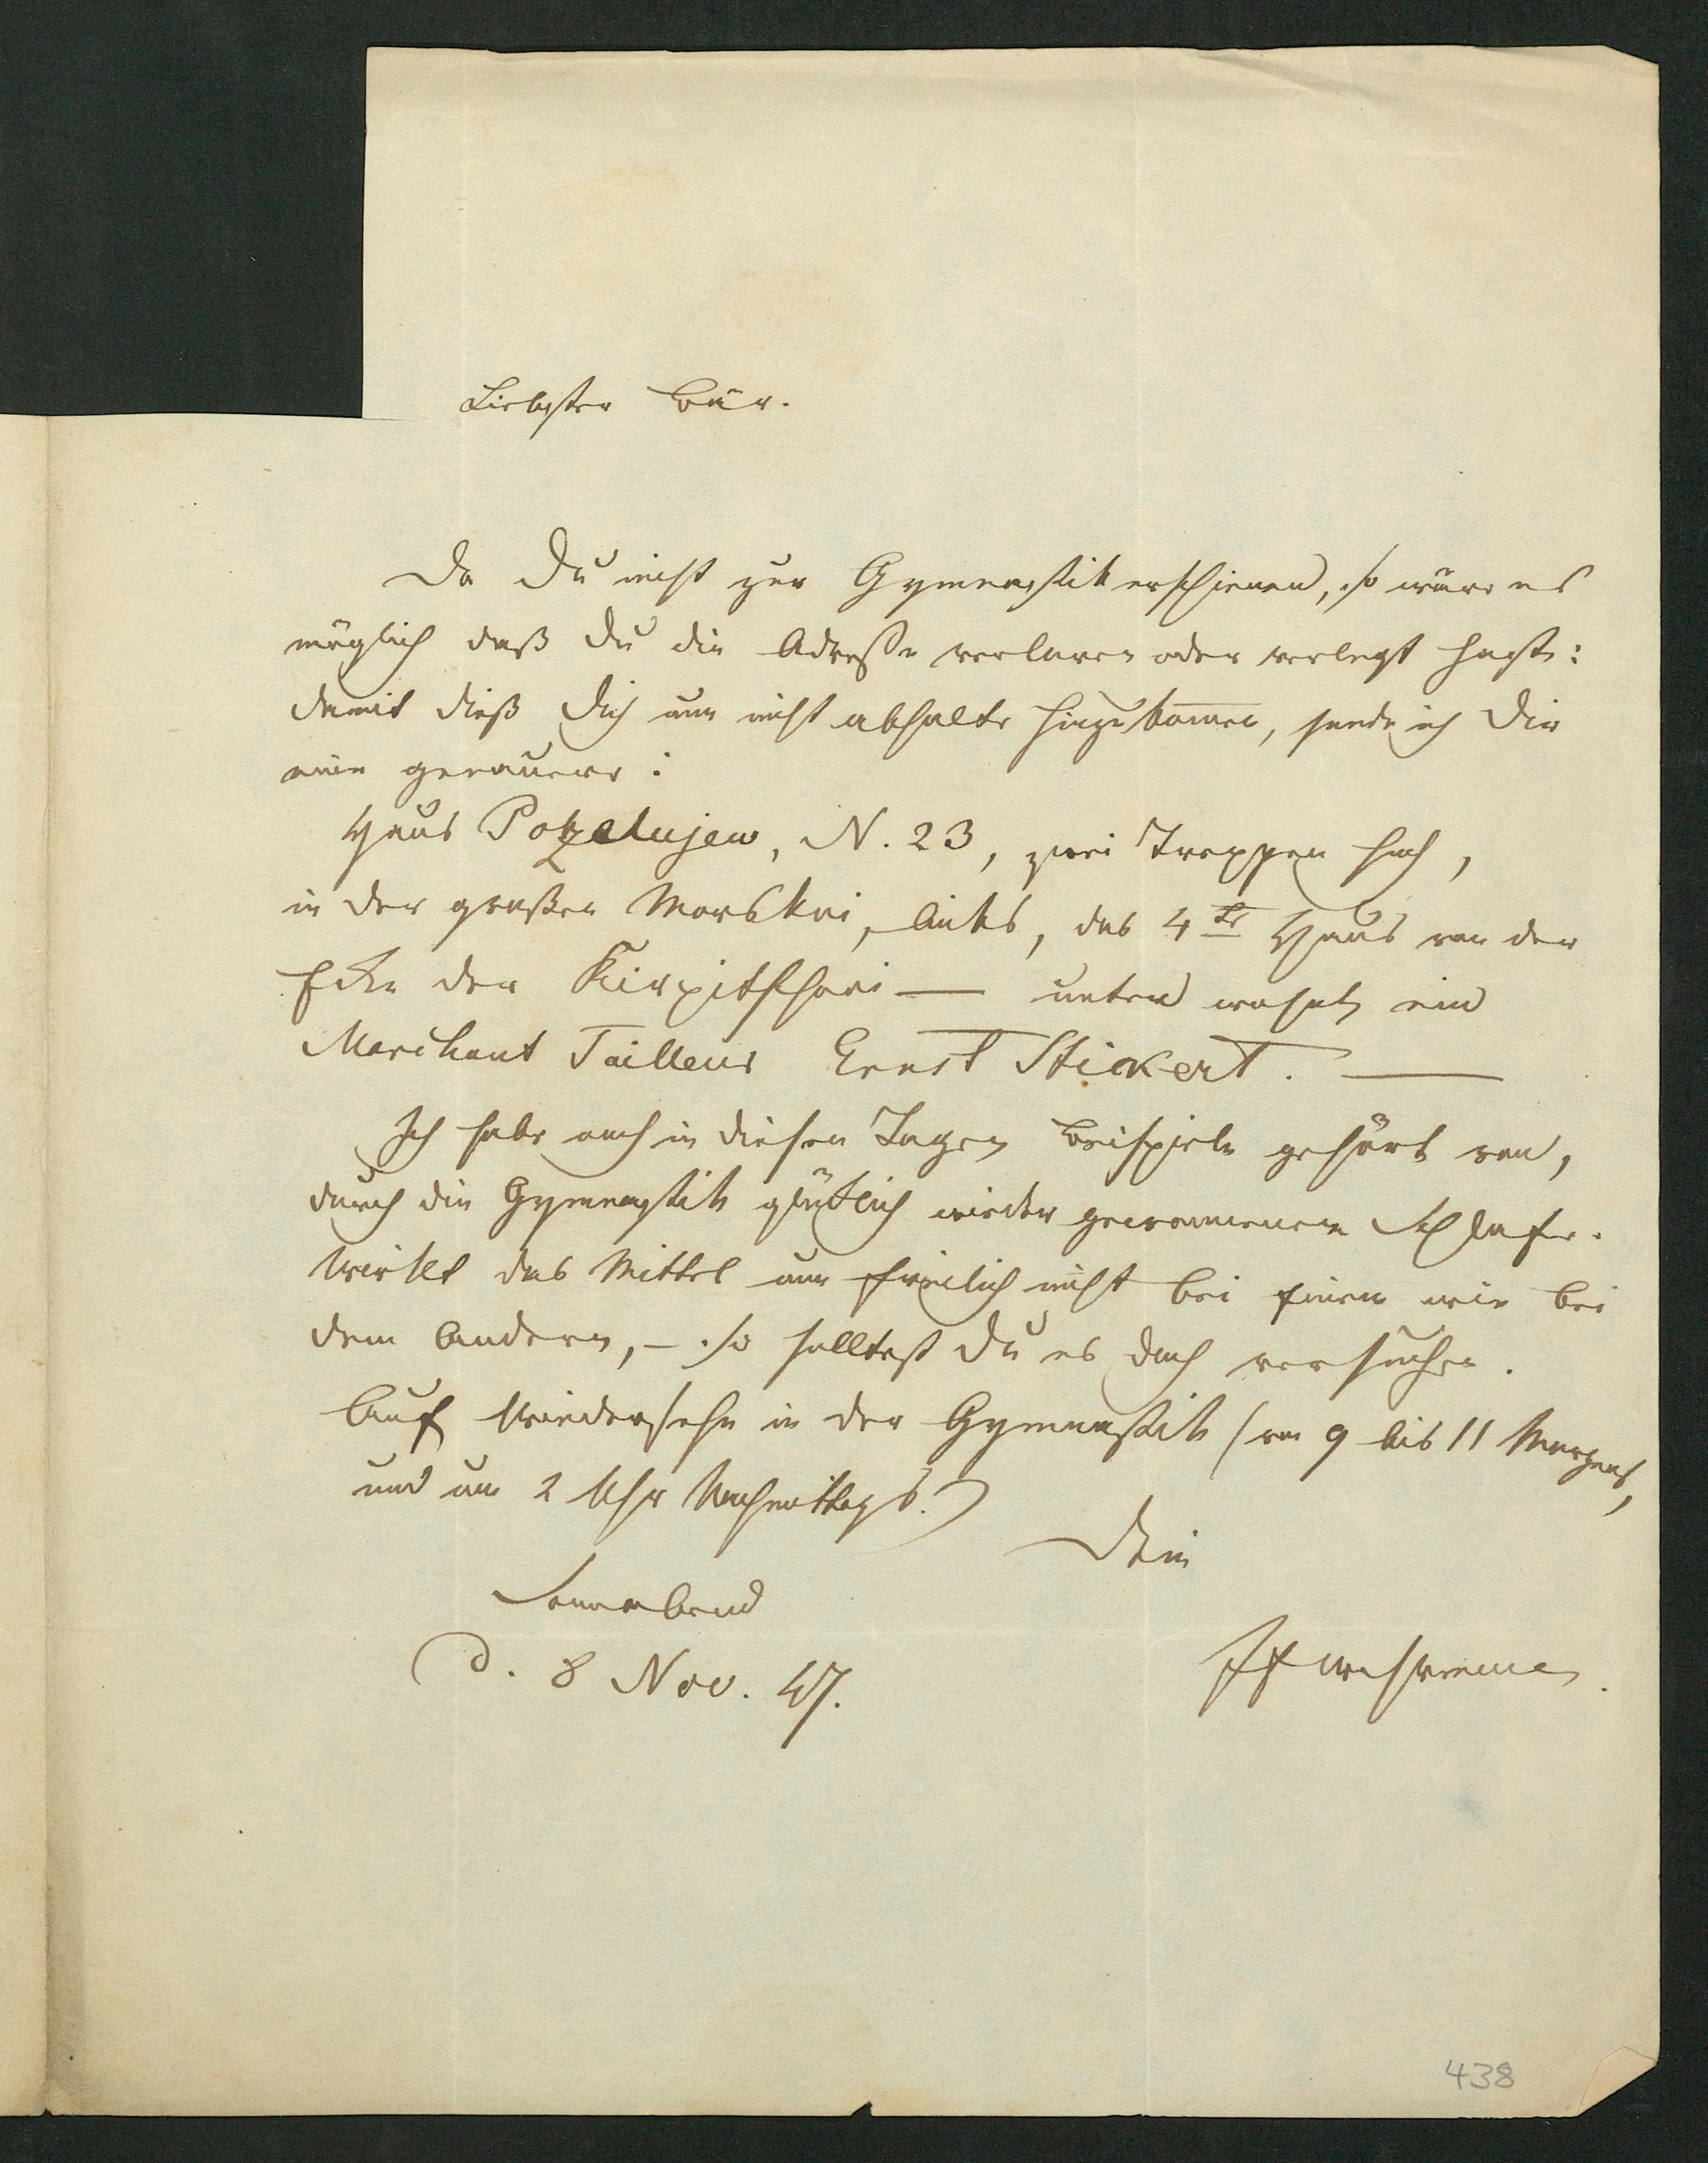 Liebster Bär.
Da Du nicht zur Gymnastik erschienen, so wäre es
möglich daß Du die Adresse verloren oder verlegt hast:
damit dieß Dich nun nicht abhalte hinzukommen, sende ich Dir
eine genauere:
Haus Potzelujew, N. 23, zwei Treppen hoch,
in der großen Morskoi, links, das 4te Haus von der
Ecke der Kirpitschnoi — unten wohnt ein
Marchant Tailleur Ernst Stickert. —
Ich habe auch in diesen Tagen Beispiele gehört von,
durch die Gymnastik glücklich wieder gewonnenem Schlafe.
Wirket das Mittel nun freilich nicht bei Einem wie bei
dem Andern, – so solltest Du es doch versuchen.
Auf Wiedersehn in der Gymnastik (von 9 bis 11 Morgens,
und um 2 Uhr Nachmittags.)
Dein
Sonnabend
d. 8 Nov. 47.
438